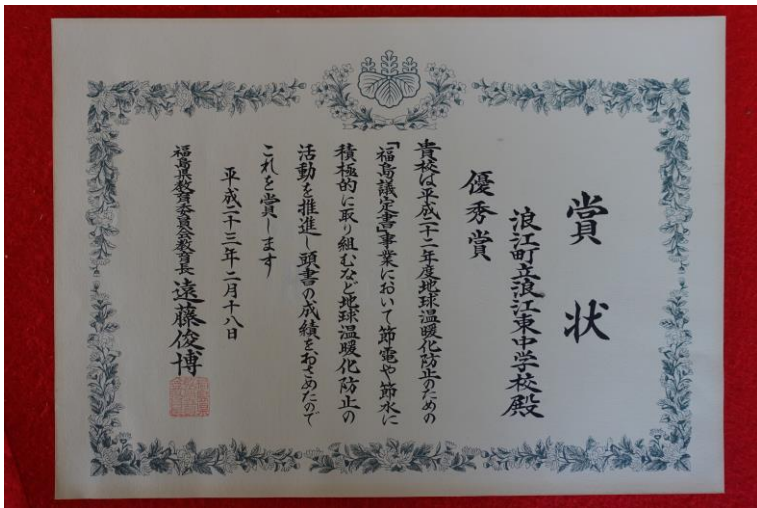 賞状
浪江町立浪江東中学校殿
優秀賞
貴校は平成二十二年度地球温暖化防止のための
「福島議定書」事業において節電や節水に
積極的に取り組むなど地球温暖化防止の
活動を推進し頭書の成績をおさめたので
これを賞します
平成二十三年二月十八日
福島県教育委員会教育長 遠藤俊博